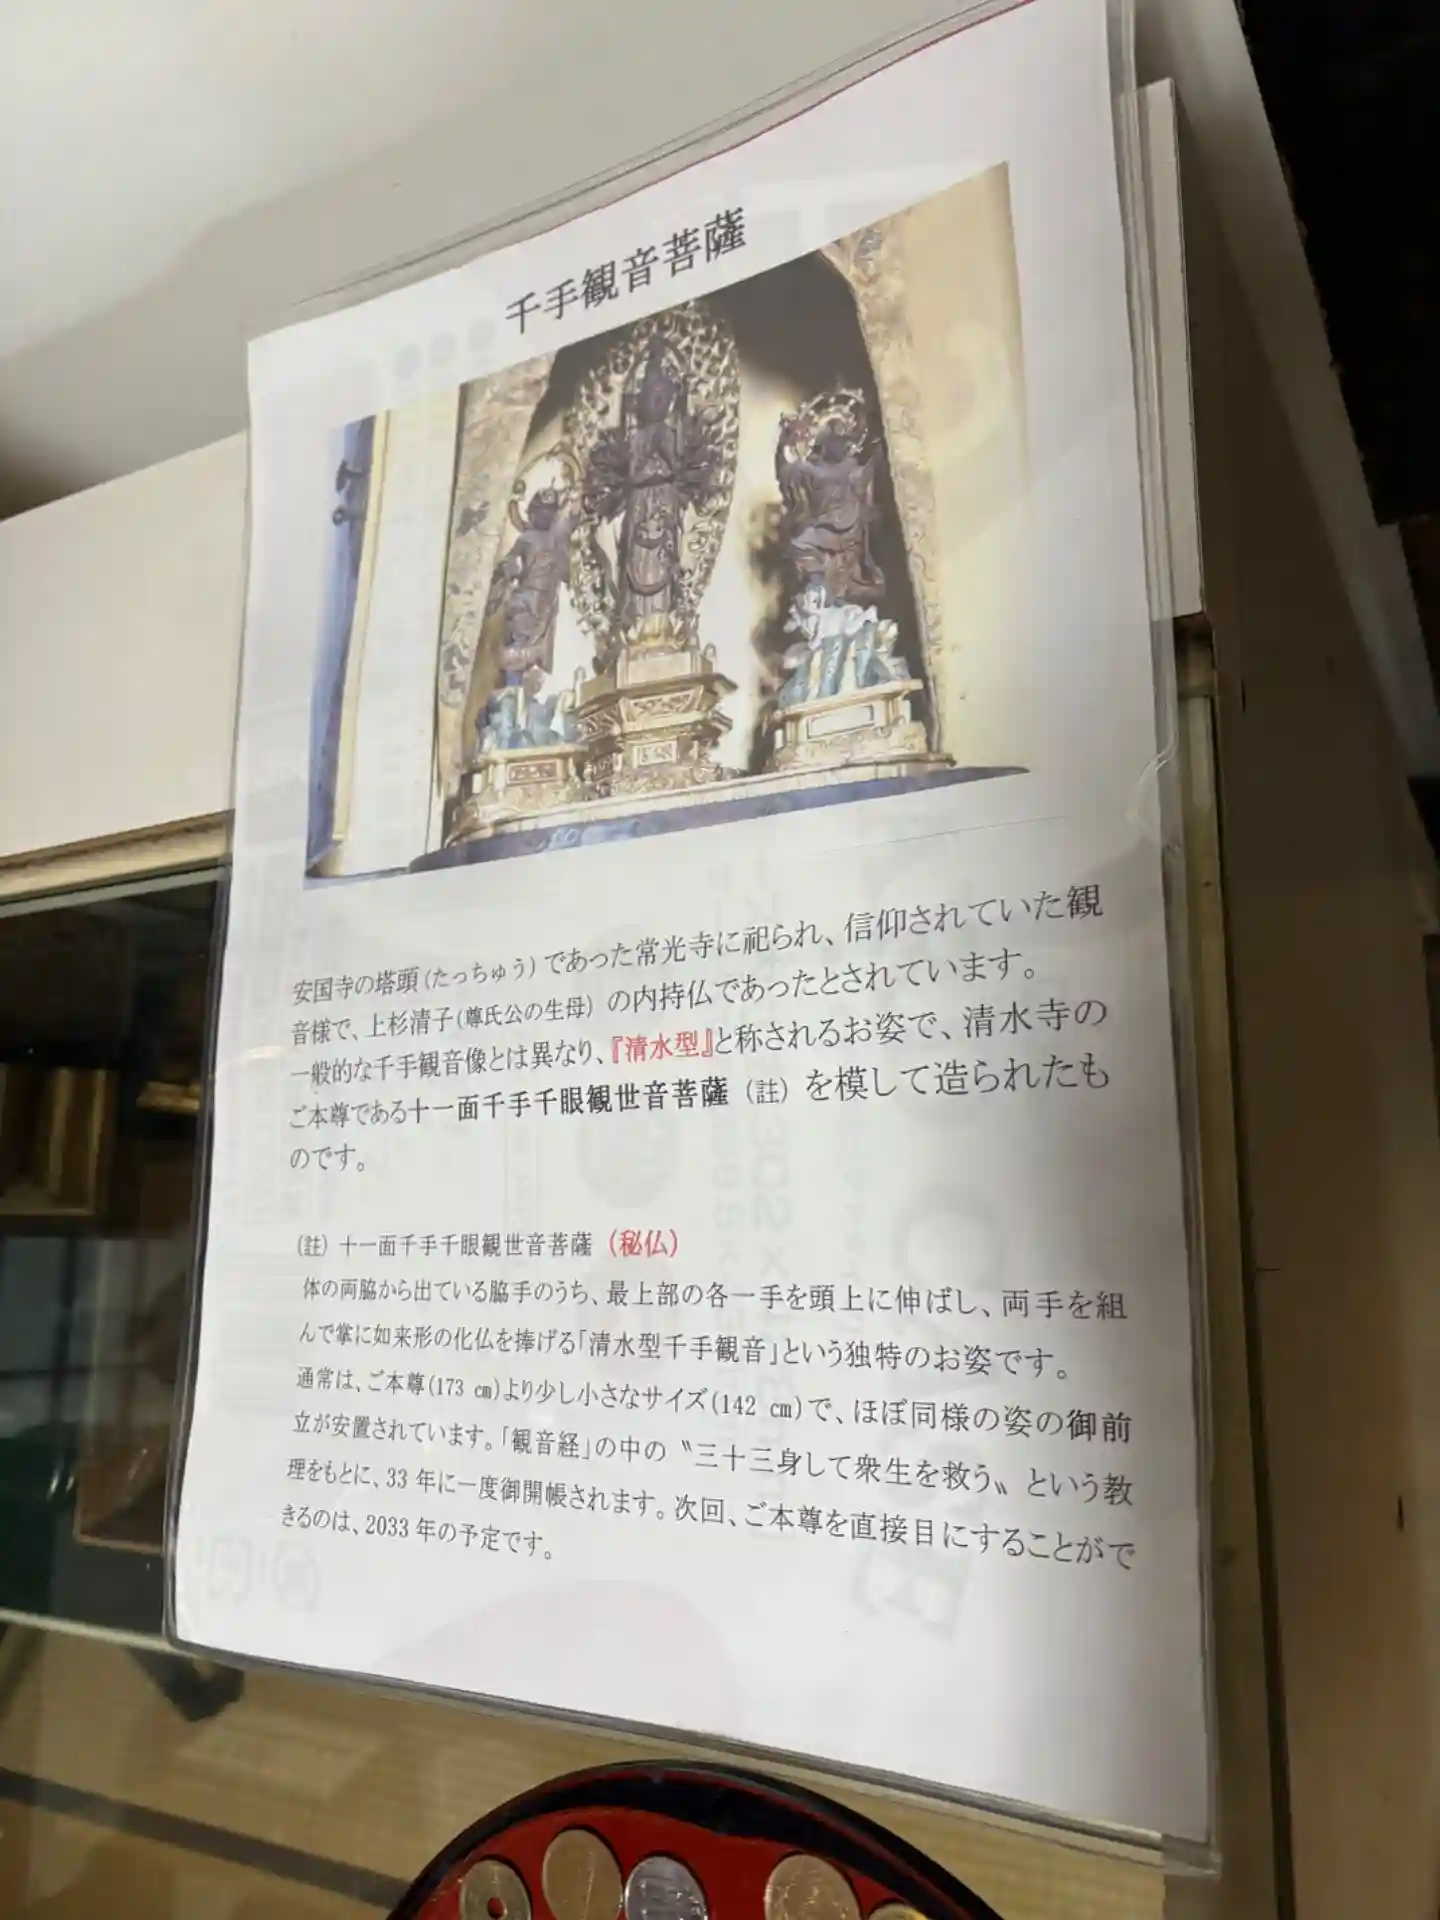 千手観音菩薩
安国寺の塔頭(たっちゅう)であった常光寺に祀られ、信仰されていた観
音様で、上杉清子(尊氏公の生母)の内持仏であったとされています。
一般的な千手観音像とは異なり、『清水型』と称されるお姿で、清水寺の
ご本尊である十一面千手千眼観世音菩薩(註)を模して造られたも
のです。
(註)十一面千手千眼観世音菩薩(秘仏)
体の両脇から出ている脇手のうち、最上部の各一手を頭上に伸ばし、両手を組
んで掌に如来形の化仏を捧げる「清水型千手観音」という独特のお姿です。
通常は、ご本尊(173 ㎝)より少し小さなサイズ(142 ㎝)で、ほぼ同様の姿の御前
立が安置されています。「観音経」の中の〝三十三身して衆生を救う〟という教
理をもとに、33 年に一度御開帳されます。次回、ご本尊を直接目にすることがで
きるのは、2033 年の予定です。